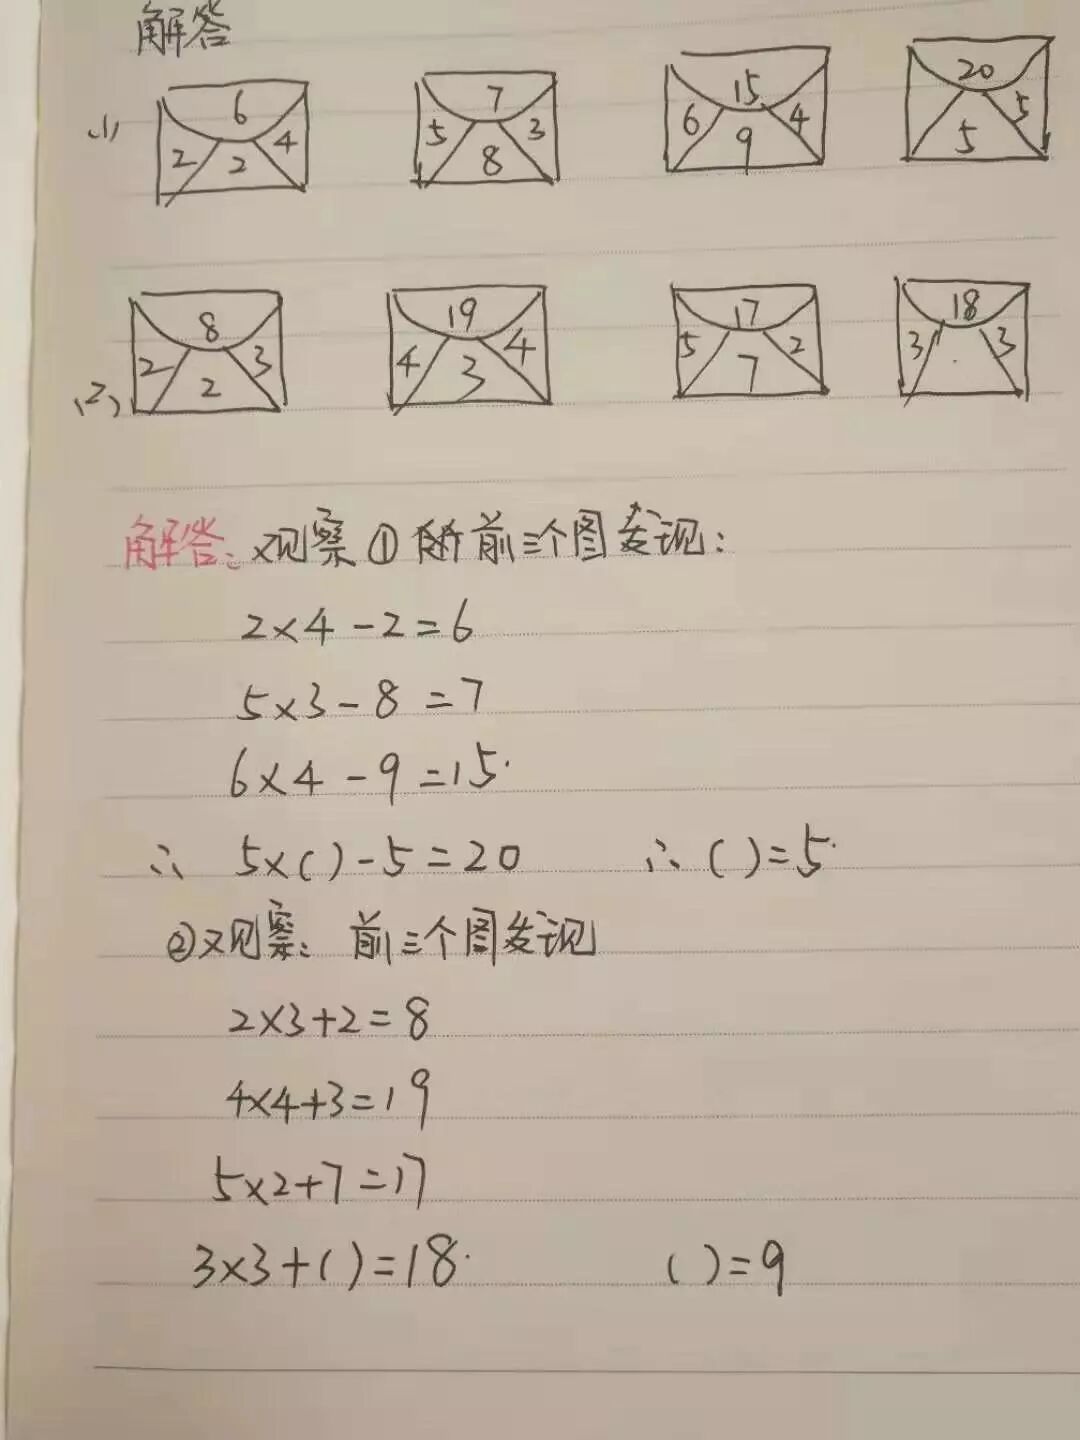 解答
(1) 6 2 2 4 7 5 8 3 15 6 9 4 20 5 5
(2) 8 2 2 3 19 4 3 4 17 5 7 2 18 3 3
解答：观察① 前三个图发现：
2×4-2=6
5×3-8=7
6×4-9=15.
∴ 5×( )-5=20 ∴( )=5.
②观察：前三个图发现
2×3+2=8
4×4+3=19
5×2+7=17
3×3+( )=18. ( )=9